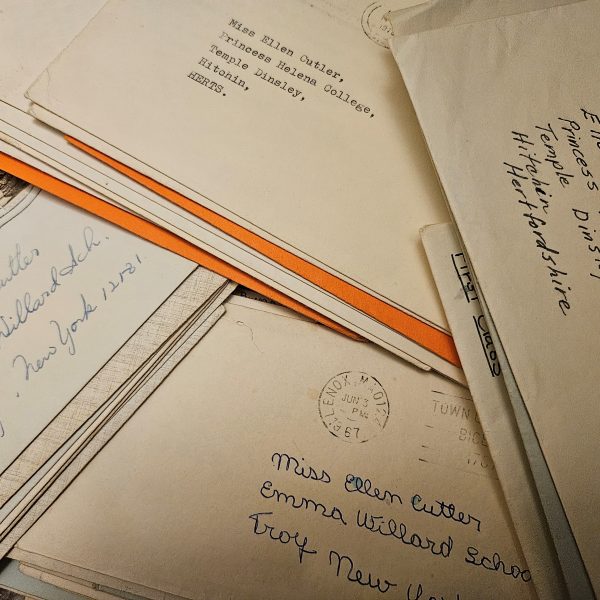 Miss Ellen Cutler,
Princess Helena College,
Temple Dinsley,
Hitchin,
HERTS.
Princess
Temple Dinsley
Hitchin
Hertfordshire
First Class
Cutler
Willard Sch.
, New York 12181
LENOX, MA 012
JUN 3
PM
67
TOWN
BICE
Miss Ellen Cutler
Emma Willard School
Troy New York